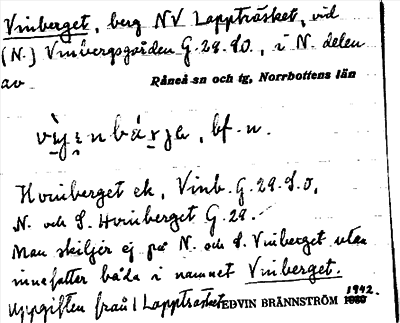 Vinberget, berg NV Lappträsket, vid
(N.) Vinbergsgården G.29.80., i N. delen
av Råneå sn och tg, Norrbottens län
bf. n.
Hvinberget ek., Vinb. G.29.S.0,
N. och S. Hvinberget G.29.
Man skiljer ej på N. och S. Vinberget utan
innefattar båda i namnet Vinberget.
Uppgiften från Lappträsket EDVIN BRÄNNSTRÖM 1942.